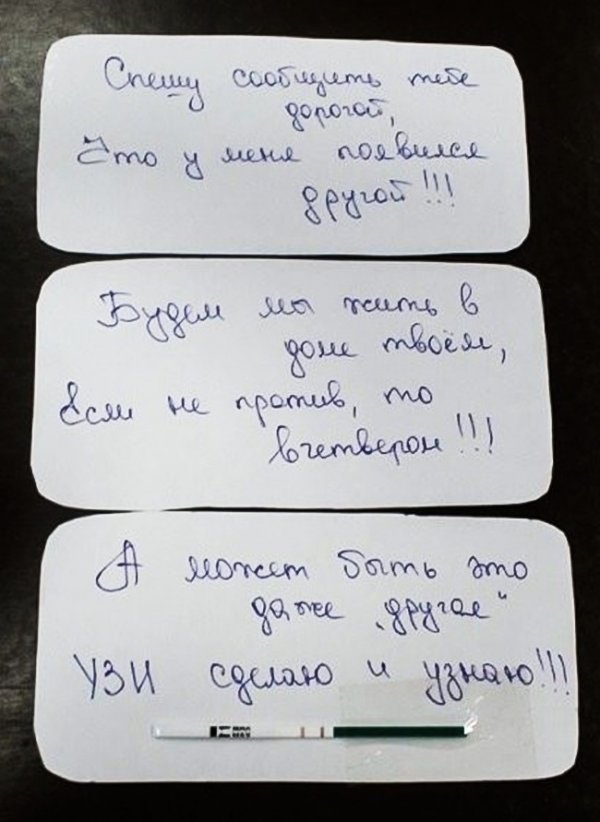 Спешу сообщить тебе
дорогой,
Что у меня появился
другой!!!
Будем мы жить в
доме твоём,
Если не против, то
вчетвером!!!
А может быть это
даже „другая“
УЗИ сделаю и узнаю!!!